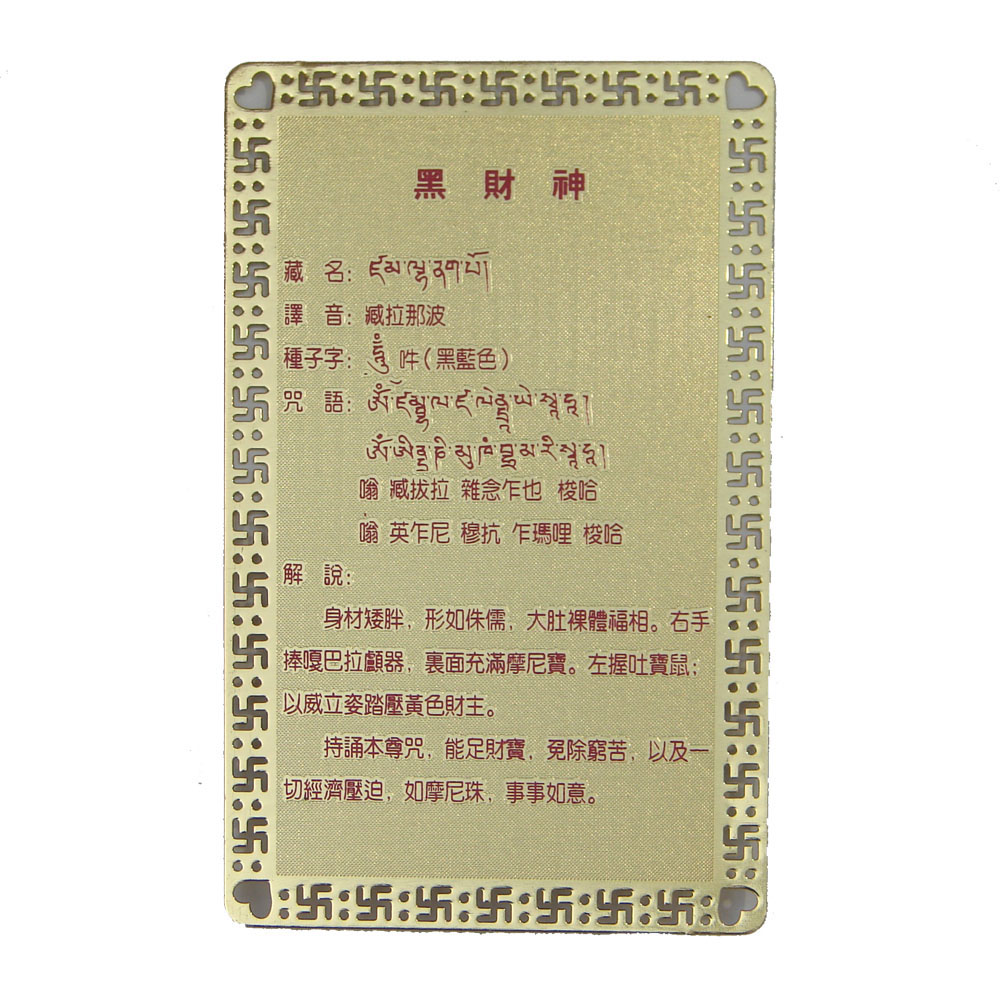 黑 財 神
藏 名：ཛམ་ལྷ་ནག་པོ།
譯 音：臧拉那波
種子字：吽（黑藍色）
咒 語：
嗡 臧拔拉 雜念乍也 梭哈
嗡 英乍尼 穆抗 乍瑪哩 梭哈
解 說：
身材矮胖，形如侏儒，大肚裸體福相。右手
捧嘎巴拉顱器，裏面充滿摩尼寶。左握吐寶鼠；
以威立姿踏壓黃色財主。
持誦本尊咒，能足財寶，免除窮苦，以及一
切經濟壓迫，如摩尼珠，事事如意。